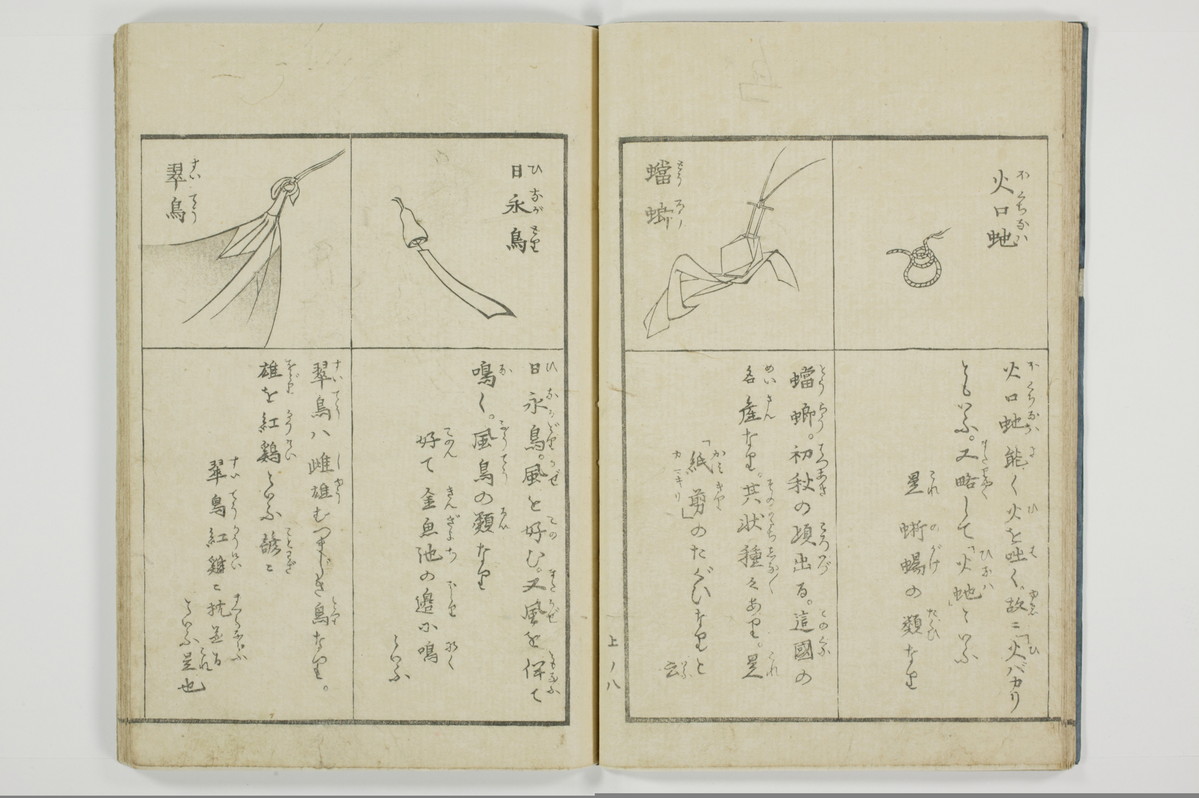 火口虵
火口虵能く火を吐く、故ニ「火バカリ
ともいふ。又略して「火虵」といふ
是蜥蜴の類なり
蟷螂
蟷螂。初秋の頃出る。這國の
名産なり。其状種々あり。是
「紙剪」のたぐひなりと
云
上ノ八
日永鳥
日永鳥。風を好む。又風を伴て
鳴く。風鳥の類なり
好て金魚池の邊に鳴
といふ
翠鳥
翠鳥ハ雌雄むつましき鳥なり。
雄を紅鶏といふ諺ニ
翠鳥紅雞ニ枕並る
といふ是也